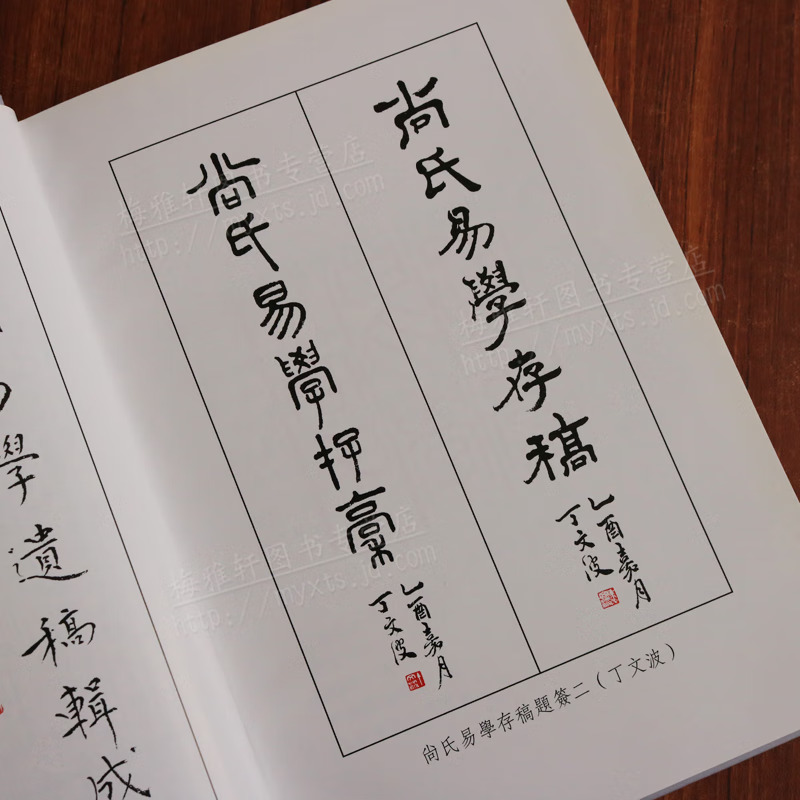 尚氏易學存稿
乙酉嘉月
丁文波
尚氏易學存稾
乙酉嘉月
丁文波
尚氏易學存稿題簽二（丁文波）
學遺稿輯成
梅雅轩图书专营店
http://myxts.jd.com
梅雅轩图书专营店
http://myxts.jd.com
梅雅轩图书专营店
http://myxts.jd.com